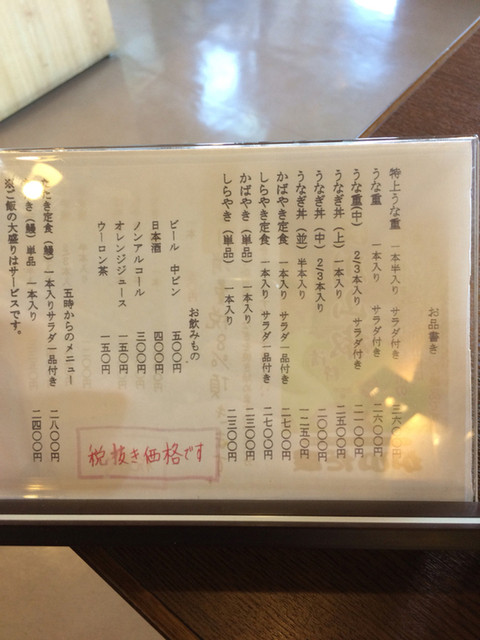 お品書き
特上うな重 一本半入り サラダ付き 三六〇〇円
うな重 一本入り サラダ付き 二六〇〇円
うな重(中) 2/3本入り サラダ付き 二一〇〇円
うなぎ丼(上) 一本入り サラダ付き 二五〇〇円
うなぎ丼(中) 2/3本入り 二〇〇〇円
うなぎ丼(並) 半本入り 一二五〇円
かばやき定食 一本入り サラダ一品付き 二七〇〇円
しらやき定食 一本入り サラダ一品付き 二七〇〇円
かばやき(単品) 一本入り 二三〇〇円
しらやき(単品) 一本入り 二三〇〇円
お飲みもの
ビール 中ビン 五〇〇円
日本酒 四〇〇円
ノンアルコール 三〇〇円
オレンジジュース 一五〇円
ウーロン茶 一五〇円
五時からのメニュー
たき定食(鰻) 一本入りサラダ一品付き 二八〇〇円
き(鰻)単品 一本入り 二四〇〇円
※ご飯の大盛りはサービスです。
税抜き価格です